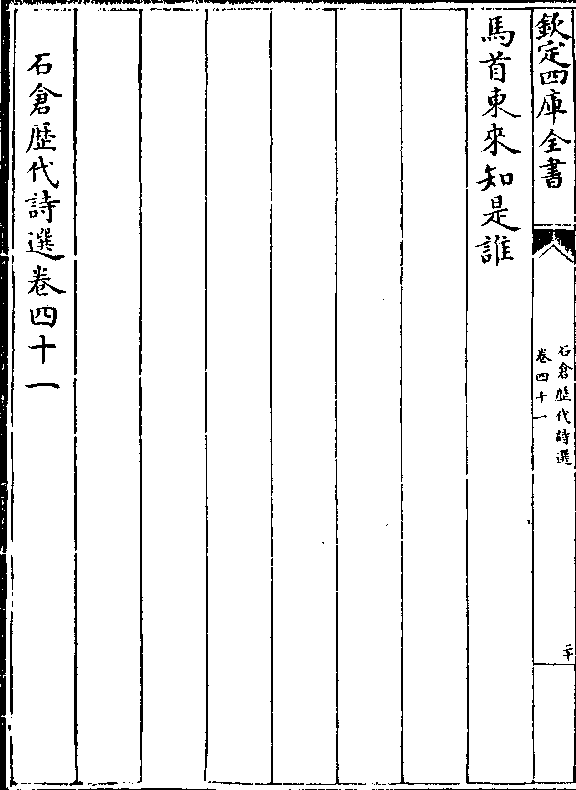 欽定四庫全書
石倉歷代詩選
卷四十一
二十
馬首東來知是誰
石倉歷代詩選卷四十一